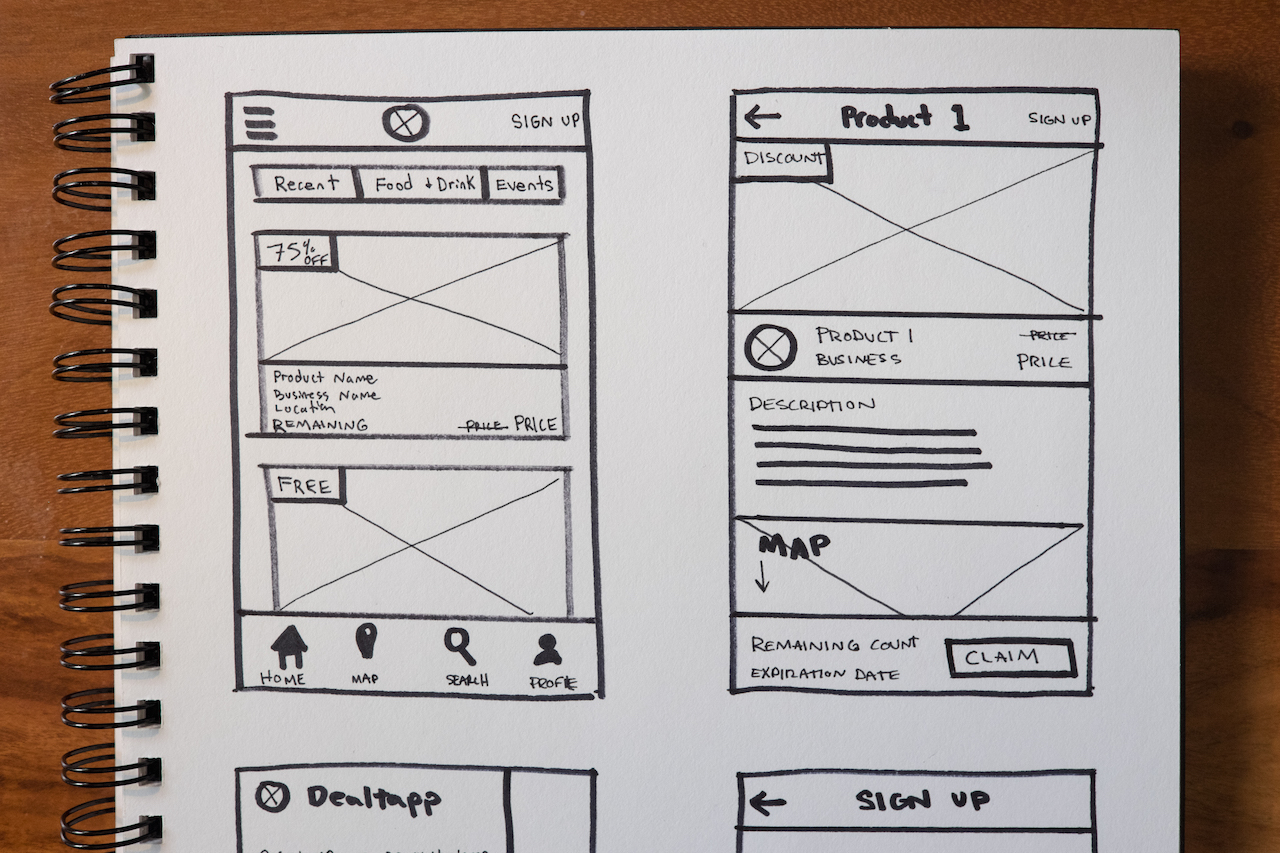 SIGN UP
Recent
Food + Drink
Events
75% OFF
Product Name
Business Name
Location
REMAINING
PRICE PRICE
FREE
HOME
MAP
SEARCH
PROFILE
Product 1
SIGN UP
DISCOUNT
PRODUCT 1
PRICE
BUSINESS
PRICE
DESCRIPTION
MAP
REMAINING COUNT
EXPIRATION DATE
CLAIM
Dealtapp
SIGN UP